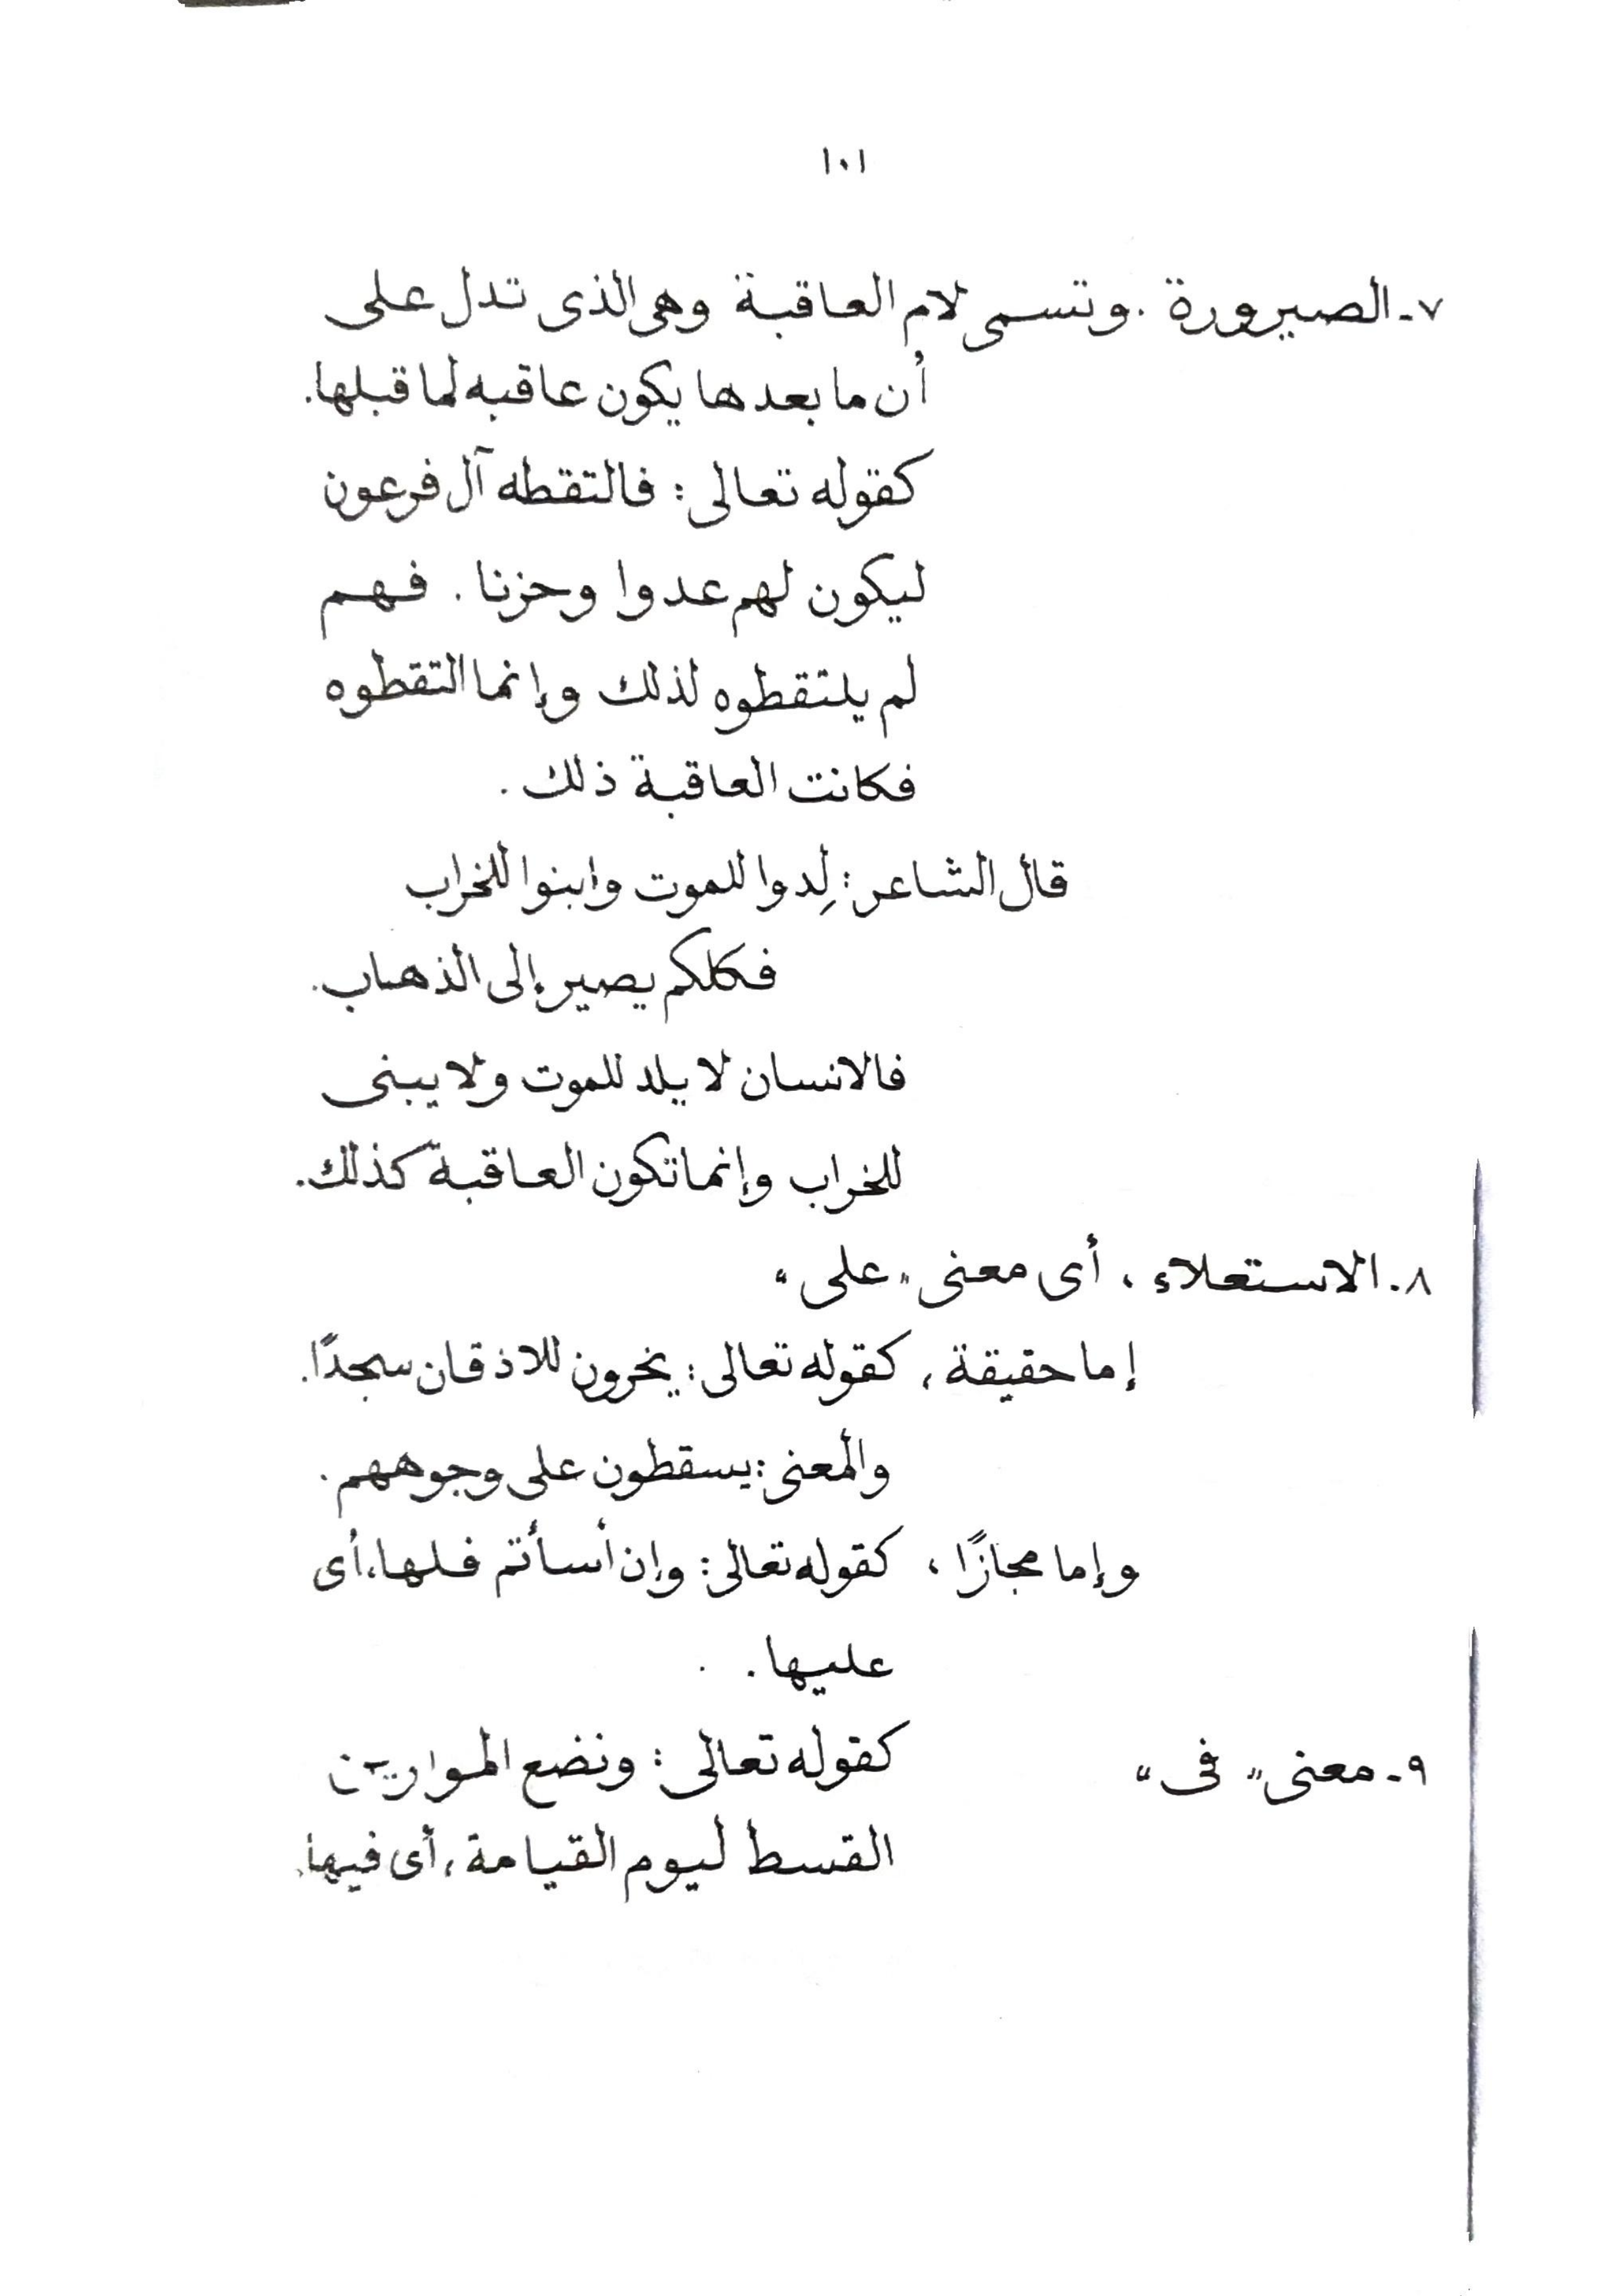 ١٠١
٧- الصيرورة . وتسمى لام العاقبة وهى الذى تدل على
أن ما بعدها يكون عاقبه لما قبلها.
كقوله تعالى : فالتقطه آل فرعون
ليكون لهم عدوا وحزنا . فهم
لم يلتقطوه لذلك وإنما التقطوه
فكانت العاقبة ذلك .
قال الشاعر : لِدوا للموت وابنوا للخراب
فكلكم يصير إلى الذهاب.
فالانسان لا يلد للموت ولا يبنى
للخراب وإنما تكون العاقبة كذلك.
٨. الاستعلاء ، أى معنى "على"
إما حقيقة ، كقوله تعالى : يخرون للاذقان سجدًا.
والمعنى : يسقطون على وجوههم .
وإما مجازًا ، كقوله تعالى : وإن أسأتم فلها، أى
عليها .
٩- معنى "فى" كقوله تعالى : ونضع الموازين
القسط ليوم القيامة ، أى فيها.